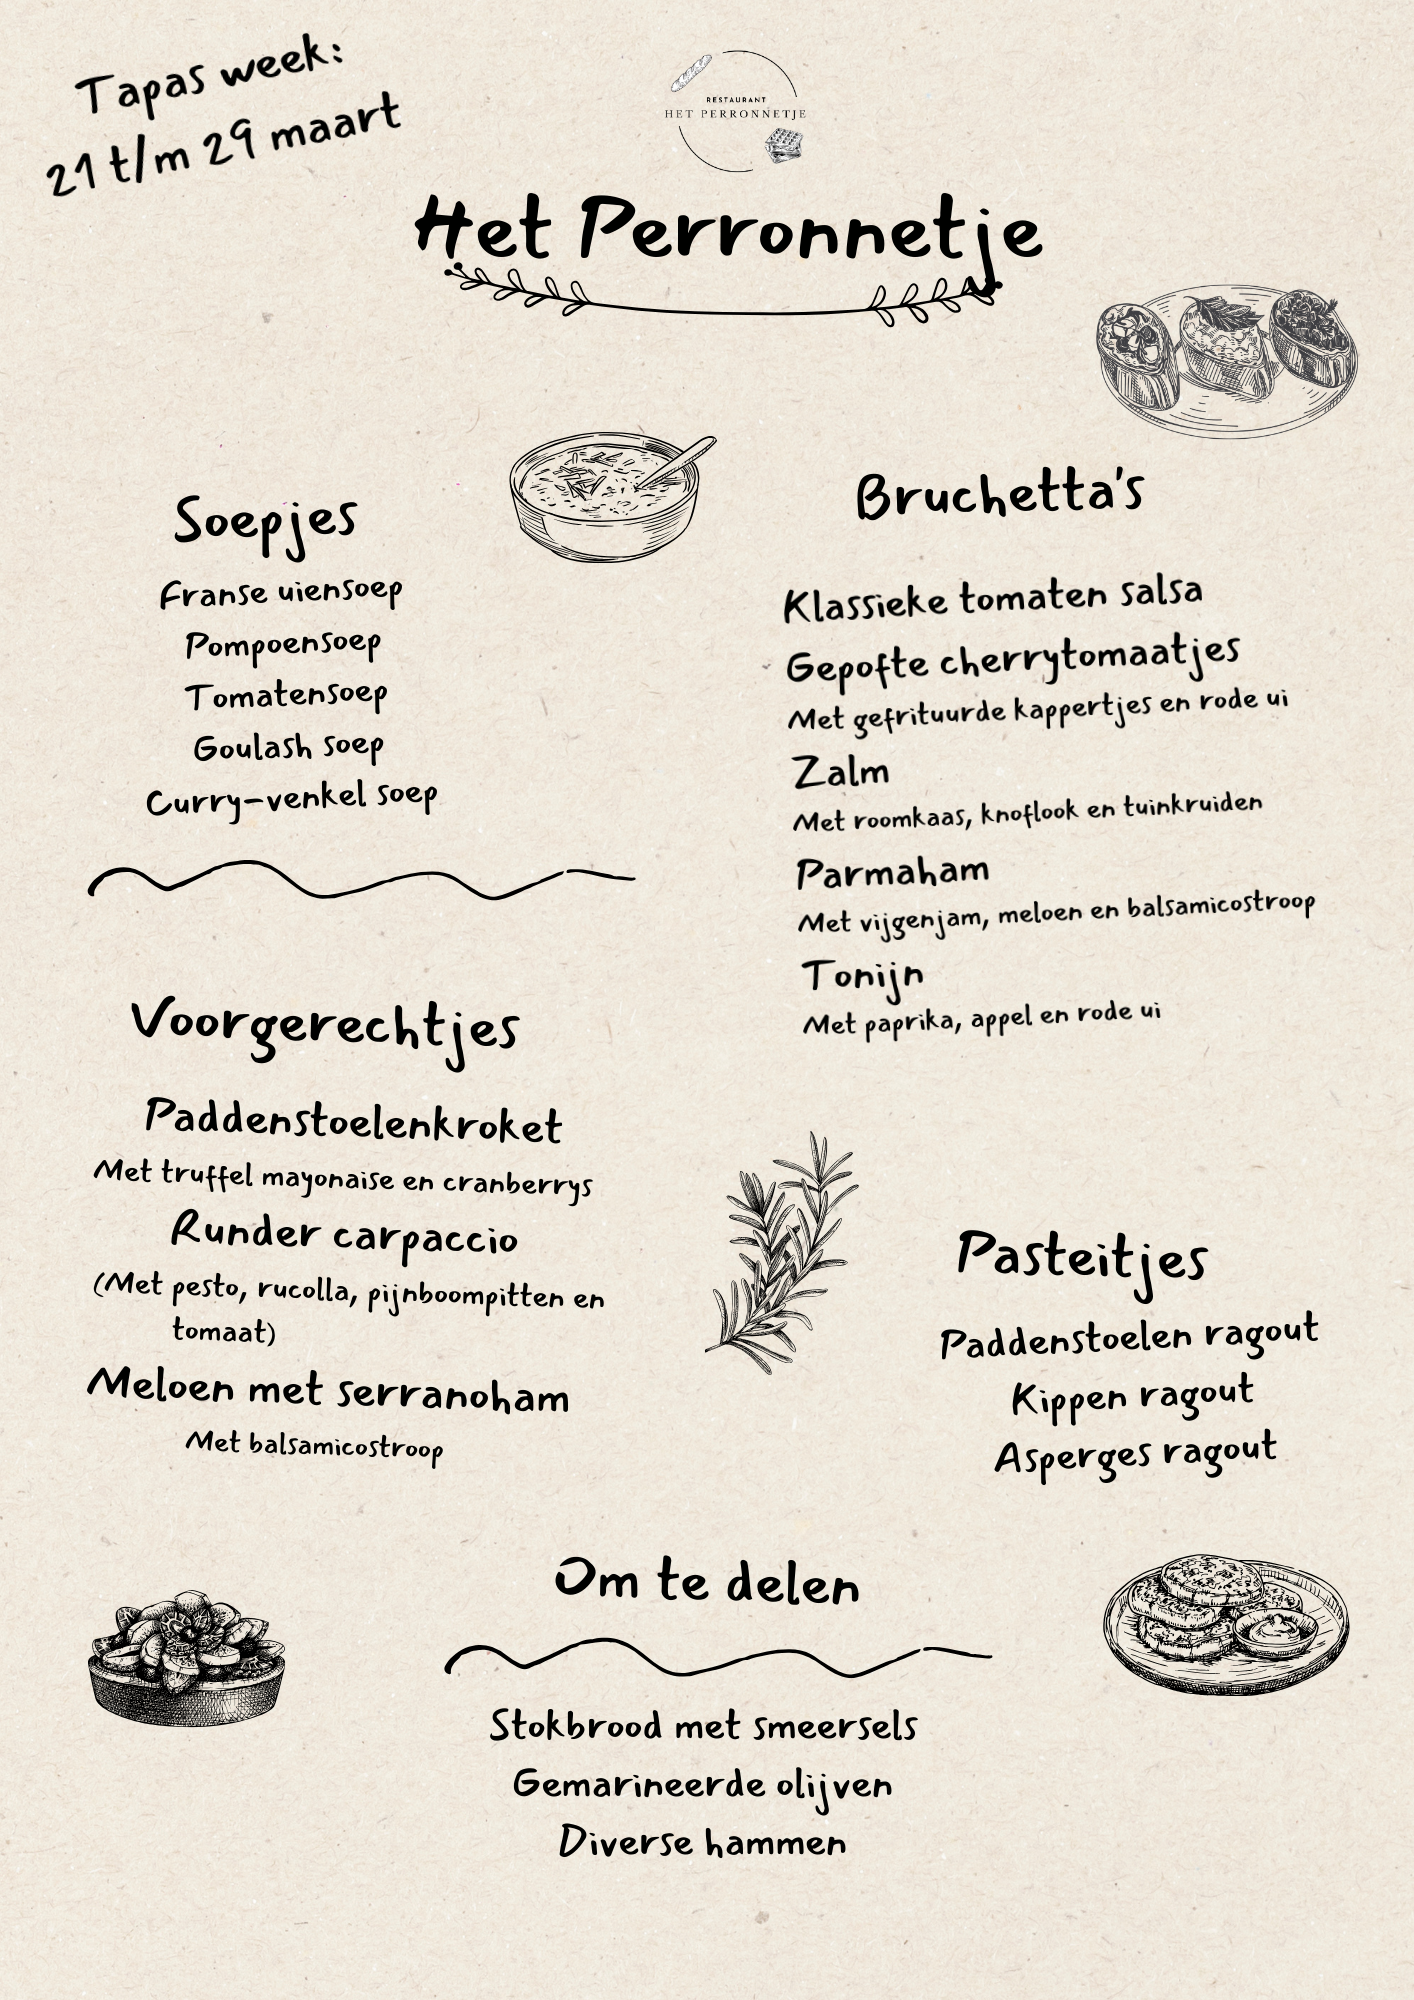 Tapas week:
21 t/m 29 maart
RESTAURANT
HET PERRONNETJE
Het Perronnetje
Soepjes
Franse uiensoep
Pompoensoep
Tomatensoep
Goulash soep
Curry-venkel soep
Bruchetta's
Klassieke tomaten salsa
Gepofte cherrytomaatjes
Met gefrituurde kappertjes en rode ui
Zalm
Met roomkaas, knoflook en tuinkruiden
Parmaham
Met vijgenjam, meloen en balsamicostroop
Tonijn
Met paprika, appel en rode ui
Voorgerechtjes
Paddenstoelenkroket
Met truffel mayonaise en cranberrys
Runder carpaccio
(Met pesto, rucolla, pijnboompitten en
tomaat)
Meloen met serranoham
Met balsamicostroop
Pasteitjes
Paddenstoelen ragout
Kippen ragout
Asperges ragout
Om te delen
Stokbrood met smeersels
Gemarineerde olijven
Diverse hammen